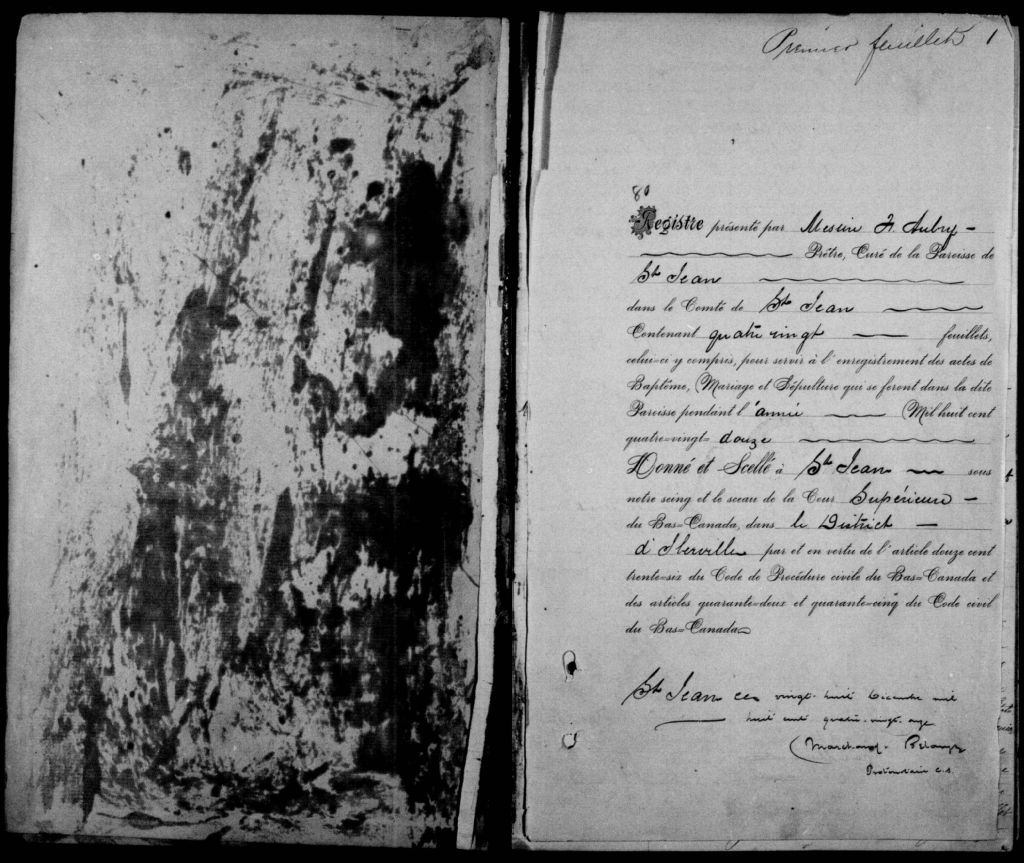 Premier feuillet 1
80
Registre présenté par Messire F. Aubry
Prêtre, Curé de la Paroisse de
St Jean
dans le Comté de St Jean
Contenant quatre vingt feuillets,
celui-ci y compris, pour servir à l'enregistrement des actes de
Baptême, Mariage et Sépulture qui se feront dans la dite
Paroisse pendant l'année Mil huit cent
quatre=vingt=douze
Donné et Scellé à St Jean sous
notre seing et le sceau de la Cour Supérieure
du Bas=Canada, dans le District
d'Iberville par et en vertu de l'article douze cent
trente=six du Code de Procédure civile du Bas=Canada et
des articles quarante=deux et quarante=cinq du Code civil
du Bas=Canada
St Jean ce vingt-huit Décembre mil
huit cent quatre-vingt-onze
Marchand
Protonotaire C.S.